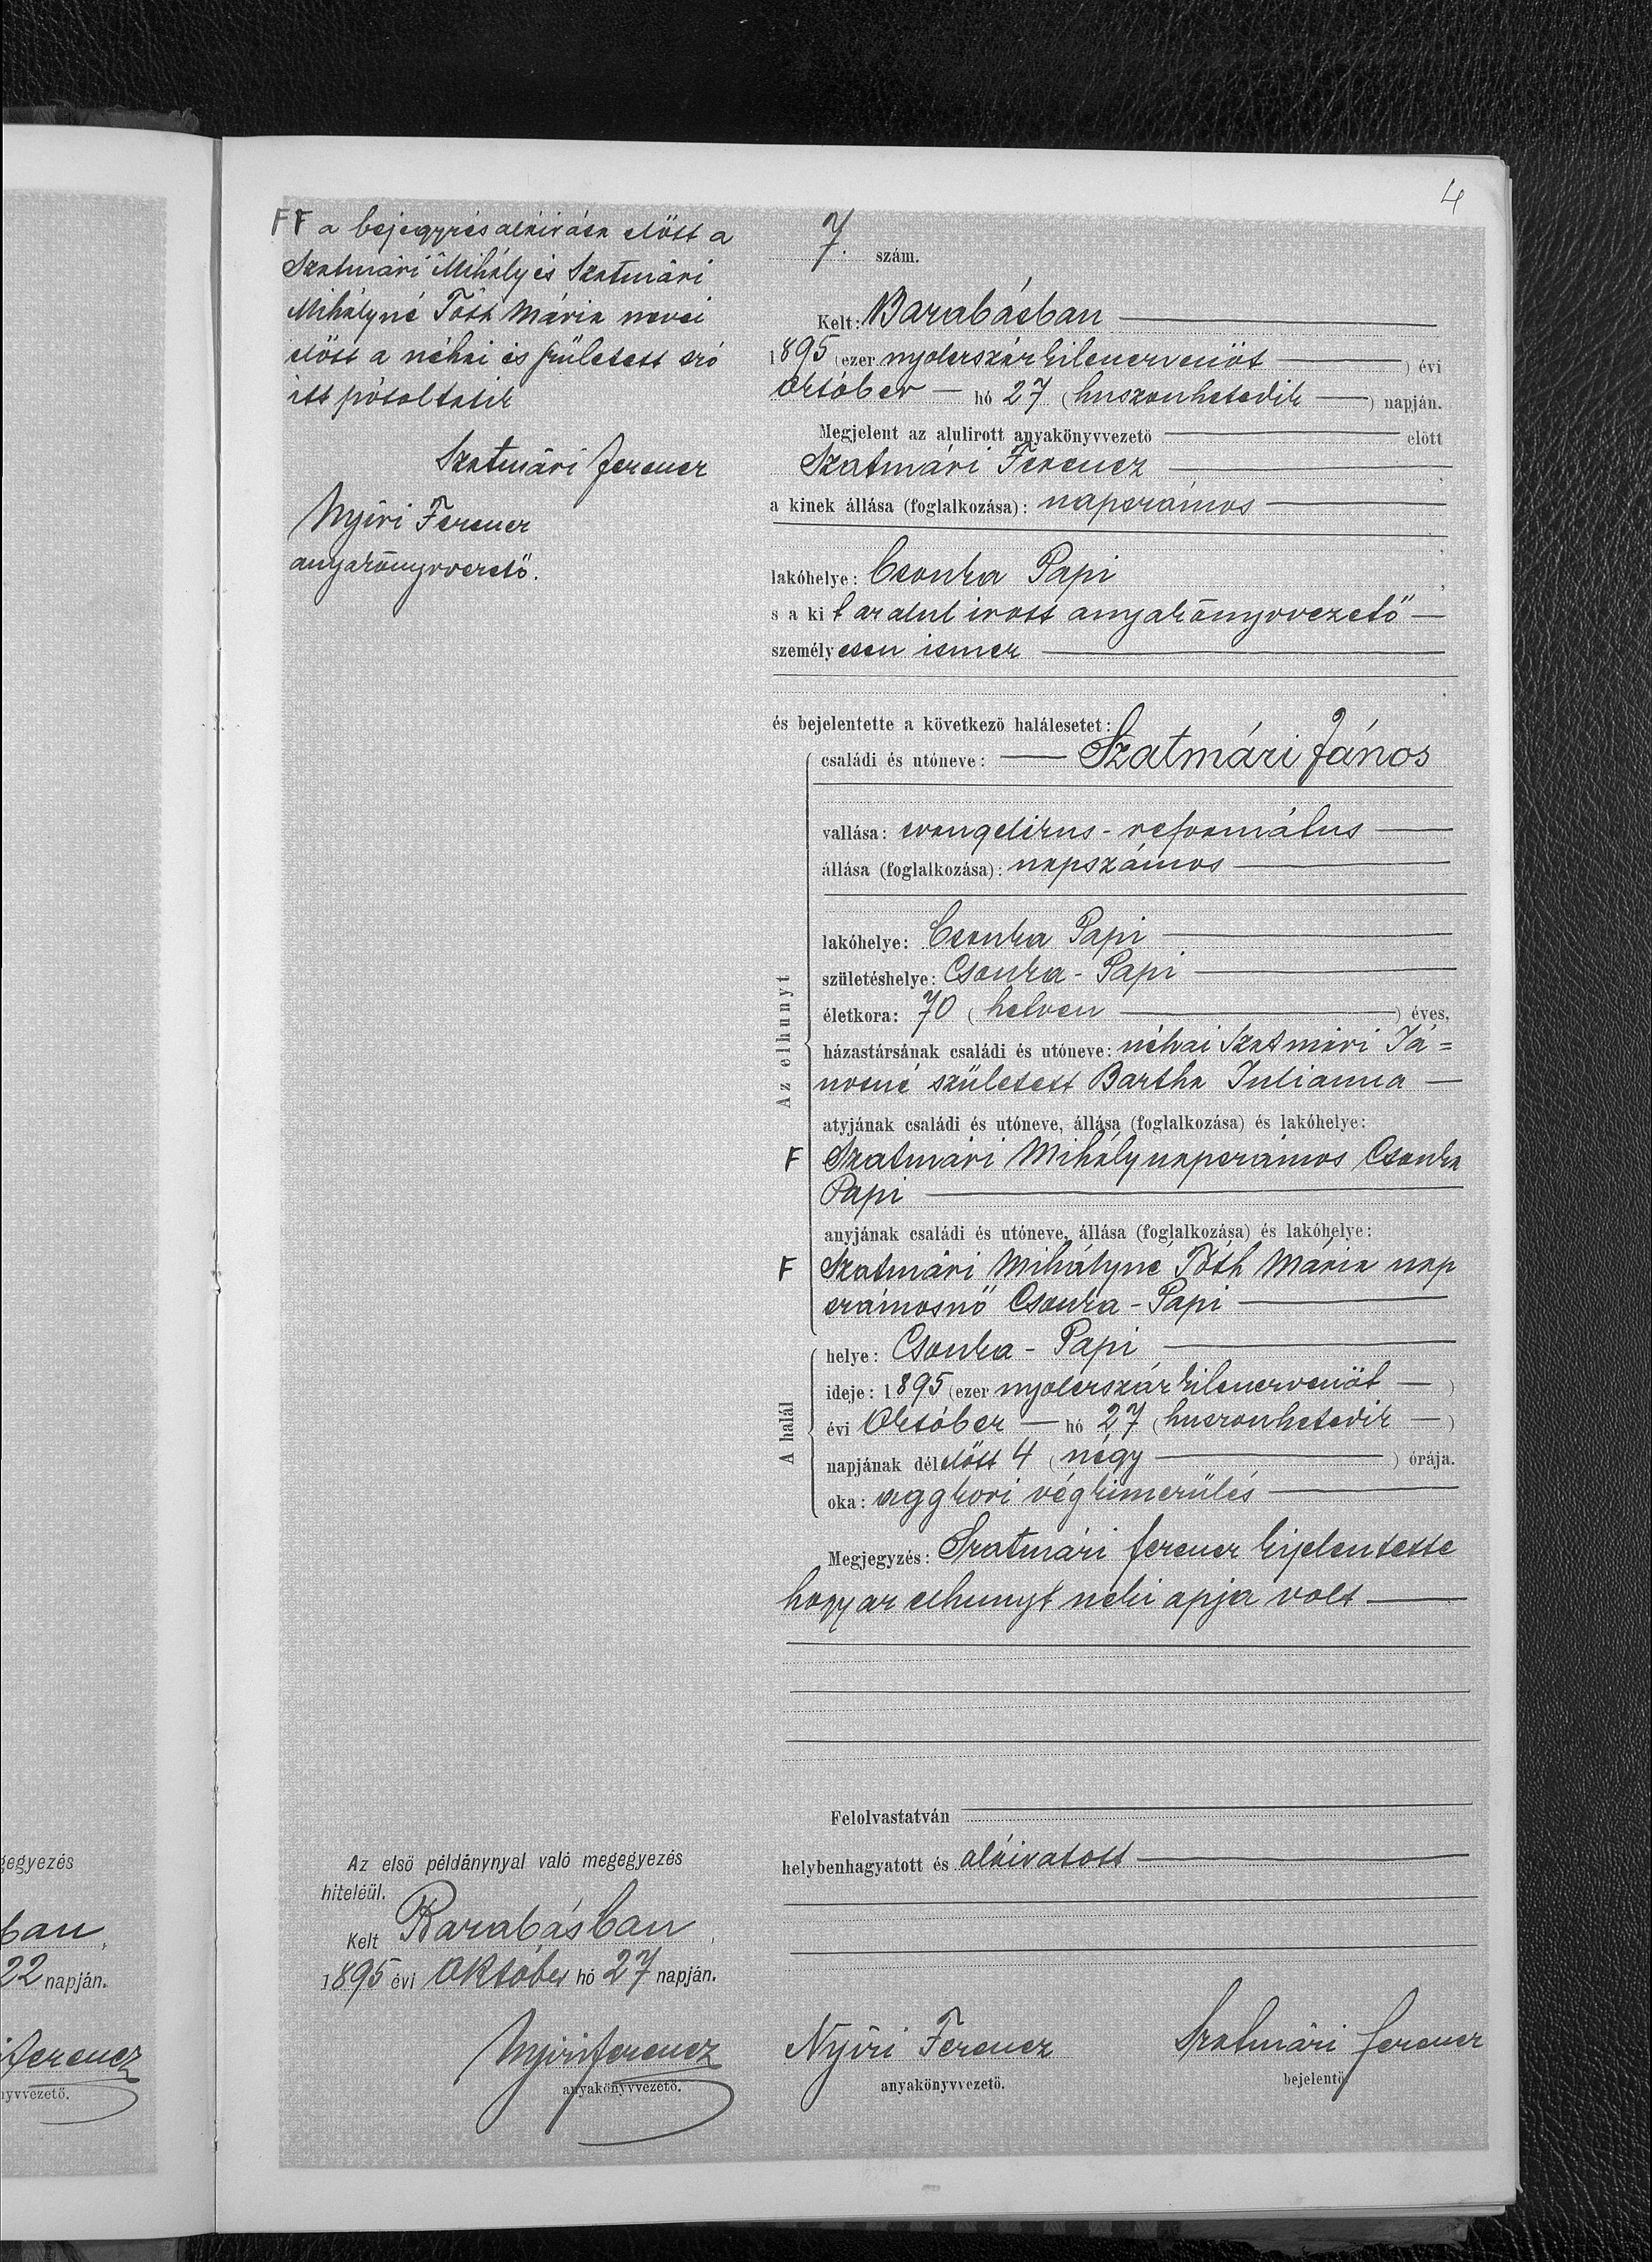 4
FF a bejegyzés aláirása előtt a
Szatmári Mihály és Szatmári
Mihályné Tóth Mária nevei
előtt a néhai és született szó
itt pótoltatik
Szatmári Ferencz
Nyiri Ferencz
anyakönyvvezető.
7. szám.
Kelt: Barabásban
1895 (ezer nyolczszázkilenczvenöt ) évi
október hó 27 (huszonhetedik ) napján.
Megjelent az alulirott anyakönyvvezető előtt
Szatmári Ferencz ,
a kinek állása (foglalkozása): napszámos
lakóhelye: Csonka Papi ,
s a kit az alul irott anyakönyvvezető
személyesen ismer
és bejelentette a következő halálesetet:
Az elhunyt
családi és utóneve: Szatmári János
vallása: evangelikus-református
állása (foglalkozása): napszámos
lakóhelye: Csonka Papi
születéshelye: Csonka-Papi
életkora: 70 (hetven ) éves,
házastársának családi és utóneve: néhai Szatmári Já=
nosné született Bartha Julianna
atyjának családi és utóneve, állása (foglalkozása) és lakóhelye:
F Szatmári Mihály napszámos Csonka
Papi
anyjának családi és utóneve, állása (foglalkozása) és lakóhelye:
F Szatmári Mihályné Tóth Mária nap
számosnő Csonka-Papi
A halál
helye: Csonka-Papi
ideje: 1895 (ezer nyolczszázkilenczvenöt )
évi Október hó 27 (huszonhetedik )
napjának délelőtt 4 (négy ) órája.
oka: aggkori végkimerülés
Megjegyzés: Szatmári Ferencz kijelentette
hogy az elhunyt neki apja volt
Felolvastatván
helybenhagyatott és aláiratott
Nyiri Ferencz
anyakönyvvezető.
Szatmári Ferencz
bejelentő.
Az első példánynyal való megegyezés
hiteléül.
Kelt Barabásban,
1895 évi Október hó 27 napján.
Nyiri Ferencz
anyakönyvvezető.
gegyezés
ban,
22 napján.
Ferencz
nyvvezető.